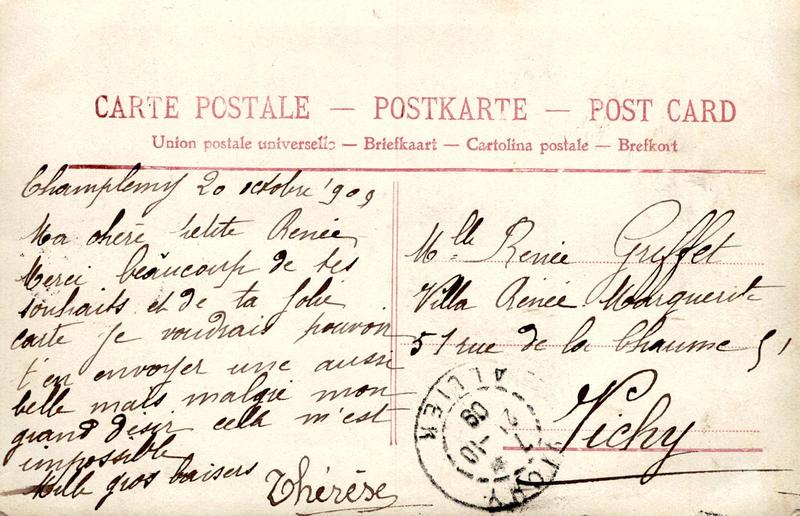 CARTE POSTALE — POSTKARTE — POST CARD
Union postale universelle — Briefkaart — Cartolina postale — Brefkort
Champlemy 20 octobre 1909
Ma chère petite Renée
Merci beaucoup de tes
souhaits et de ta jolie
carte je voudrais pouvoir
t'en envoyer une aussi
belle mais malgré mon
grand désir cella m'est
impossible
Mille gros baisers
Thérèse
Mlle Renée Griffet
Villa Renée Marguerite
51 rue de la Chaume 51
Vichy
VICHY
ALLIER
09